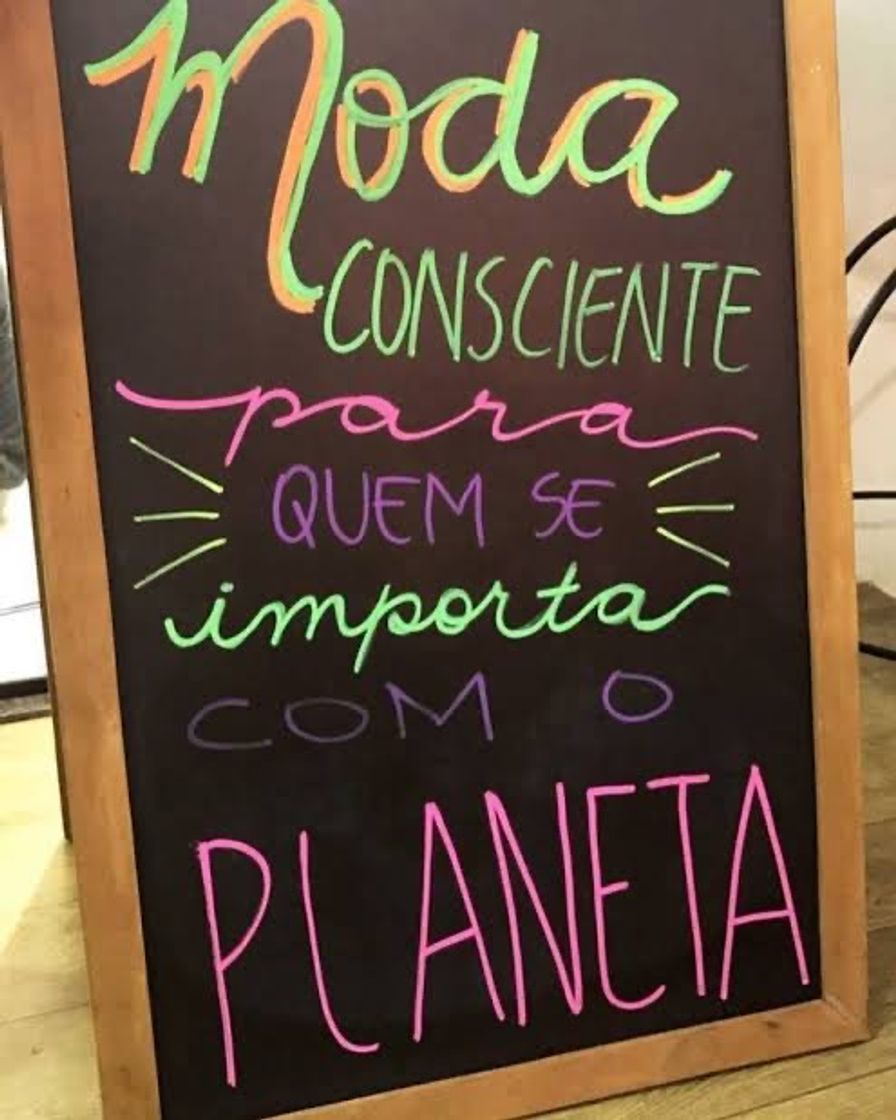 Moda
CONSCIENTE
para
QUEM SE
importa
COM O
PLANETA